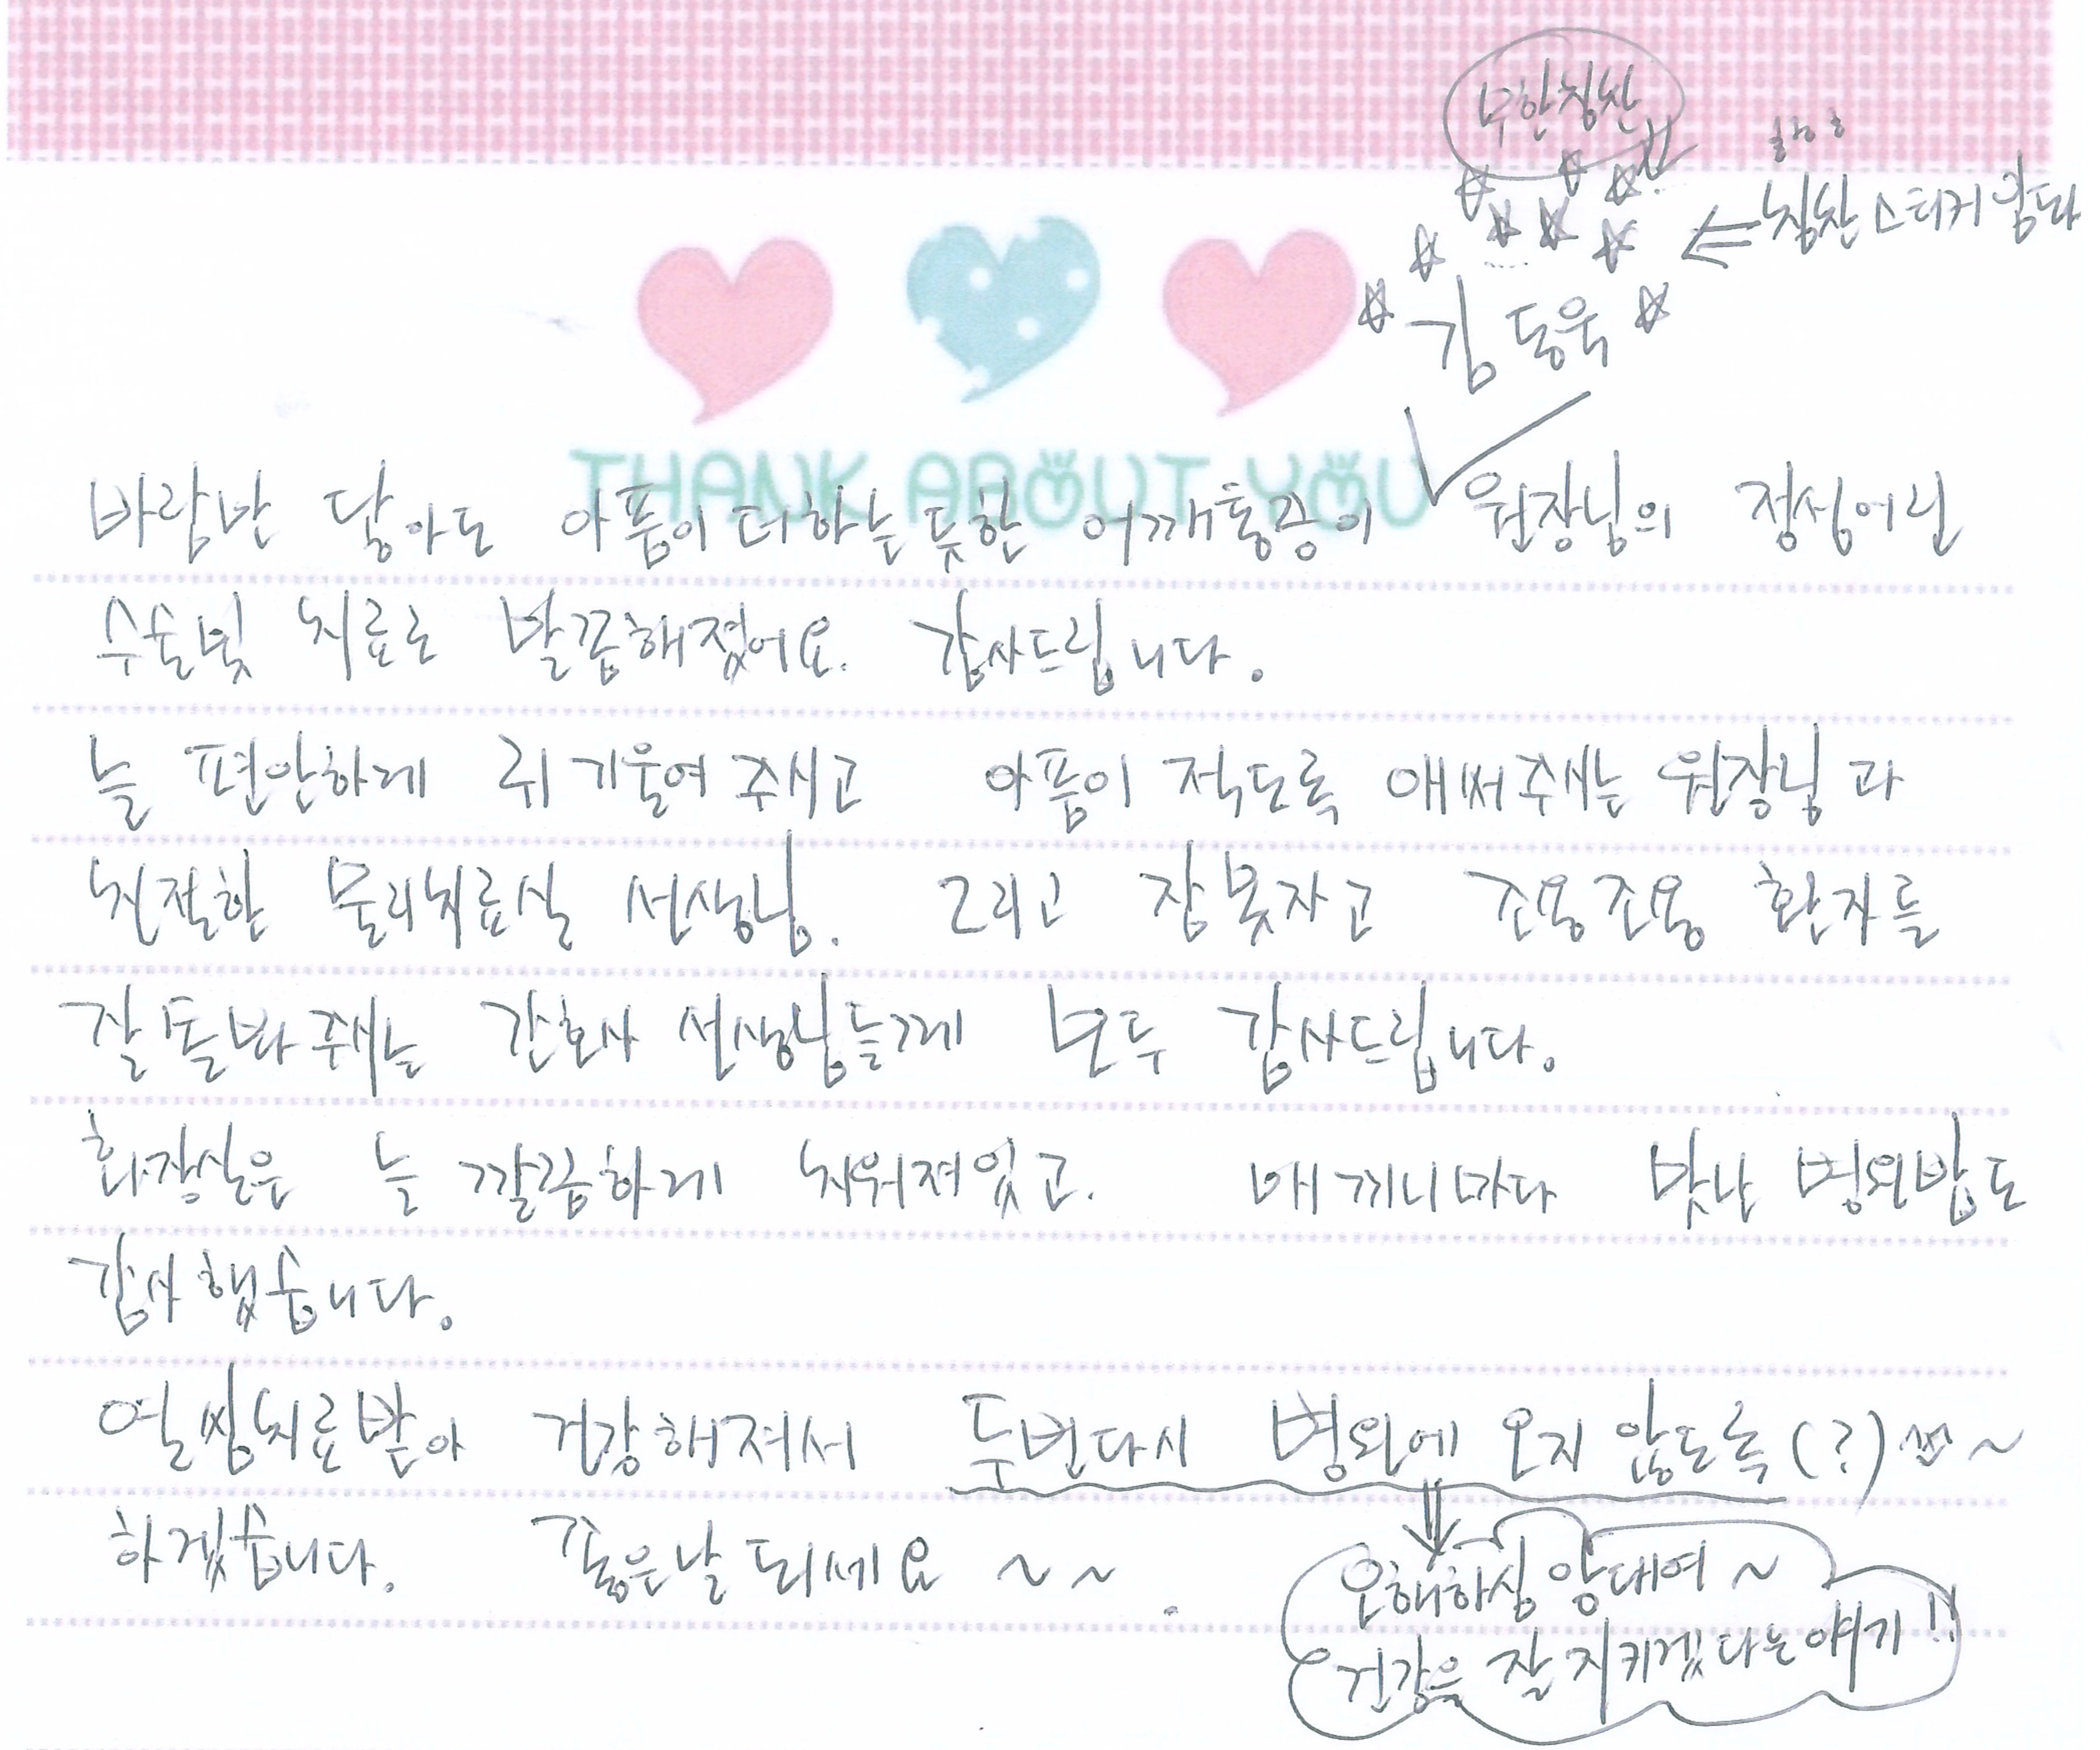 무한칭찬
하하하
칭찬 스티커 임돠
김동욱
THANK ABOUT YOU
바람만 닿아도 아픔이 더하는 듯한 어깨통증이 원장님의 정성어린
수술및 치료로 말끔해졌어요. 감사드립니다.
늘 편안하게 귀 기울여 주시고 아픔이 적도록 애써주시는 원장님과
친절한 물리치료실 선생님. 그리고 잠못자고 조용조용 환자를
잘 돌봐주시는 간호사 선생님들께 모두 감사드립니다.
화장실은 늘 깔끔하게 치워져있고. 매 끼니마다 맛난 병원밥도
감사했습니다.
열씸치료받아 건강해져서 두번다시 병원에 오지 않도록(?) ~
하겠습니다. 좋은날 되세요 ~ ~
오해하심 앙대여 ~
건강을 잘 지키겠다는 얘기!!